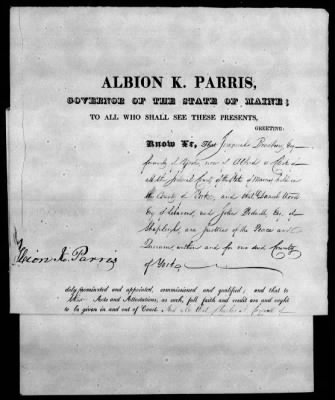 ALBION K. PARRIS,
GOVERNOR OF THE STATE OF MAINE;
TO ALL WHO SHALL SEE THESE PRESENTS,
GREETING:
Know Ye, That Jeremiah Bradbury Esq
of York, now of Alfred is Clerk of
the Judicial Courts of the State of Maine, held in
the County of York, and that Daniel Wood
Esq of Lebanon, and John Esq of
Shapleigh, are Justices of the Peace and
Quorum within and for our said County
of York
Albion K. Parris
duly nominated and appointed, commissioned and qualified; and that to
their Acts and Attestations, as such, full faith and credit are and ought
to be given in and out of Court. And also that